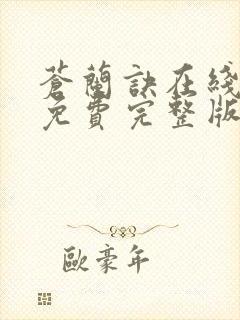 蒼蘭訣在綫
免費完整版
歐豪年